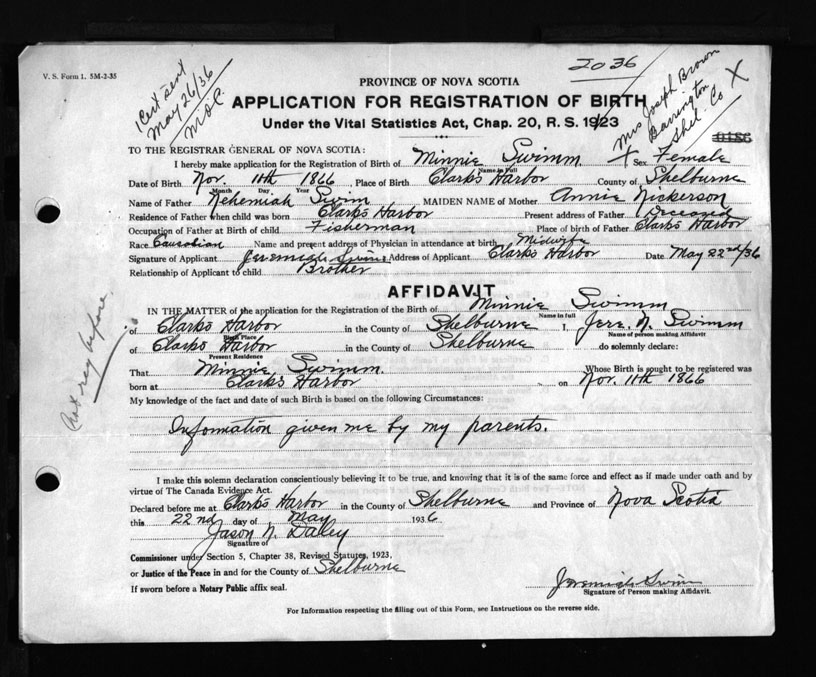 V. S. Form 1. 5M-2-35
2036
1 Cert sent
May 26/36
Mrs Joseph Brown
Barrington
Shel Co
X
PROVINCE OF NOVA SCOTIA
APPLICATION FOR REGISTRATION OF BIRTH
Under the Vital Statistics Act, Chap. 20, R. S. 1923
TO THE REGISTRAR GENERAL OF NOVA SCOTIA:
I hereby make application for the Registration of Birth of Minnie Swimm X Sex Female
Name in Full
Date of Birth Nov. 11th 1866, Place of Birth Clarks Harbor County of Shelburne
Month Day Year
Name of Father Nehemiah Swim MAIDEN NAME of Mother Annie Nickerson
Residence of Father when child was born Clarks Harbor Present address of Father Deceased
Occupation of Father at Birth of child Fisherman Place of birth of Father Clarks Harbor
Race Name and present address of Physician in attendance at birth Midwife
Signature of Applicant Jeremiah Swim Address of Applicant Clarks Harbor Date May 22nd/36
Relationship of Applicant to child Brother
AFFIDAVIT
IN THE MATTER of the application for the Registration of the Birth of Minnie Swimm
Name in full
of Clarks Harbor in the County of Shelburne I, Jere. N. Swimm
Birth Place Name of person making Affidavit
of Clarks Harbor in the County of Shelburne do solemnly declare:
Present Residence
That Minnie Swimm. Whose Birth is sought to be registered was
born at Clarks Harbor on Nov. 11th 1866
My knowledge of the fact and date of such Birth is based on the following Circumstances:
Information given me by my parents.
I make this solemn declaration conscientiously believing it to be true, and knowing that it is of the same force and effect as if made under oath and by
virtue of The Canada Evidence Act.
Declared before me at Clarks Harbor in the County of Shelburne and Province of Nova Scotia
this 22nd day of May 1936
Jason N. Daley
Signature of
Commissioner under Section 5, Chapter 38, Revised Statutes, 1923,
or Justice of the Peace in and for the County of Shelburne
If sworn before a Notary Public affix seal.
Jeremiah Swim
Signature of Person making Affidavit.
For Information respecting the filling out of this Form, see Instructions on the reverse side.